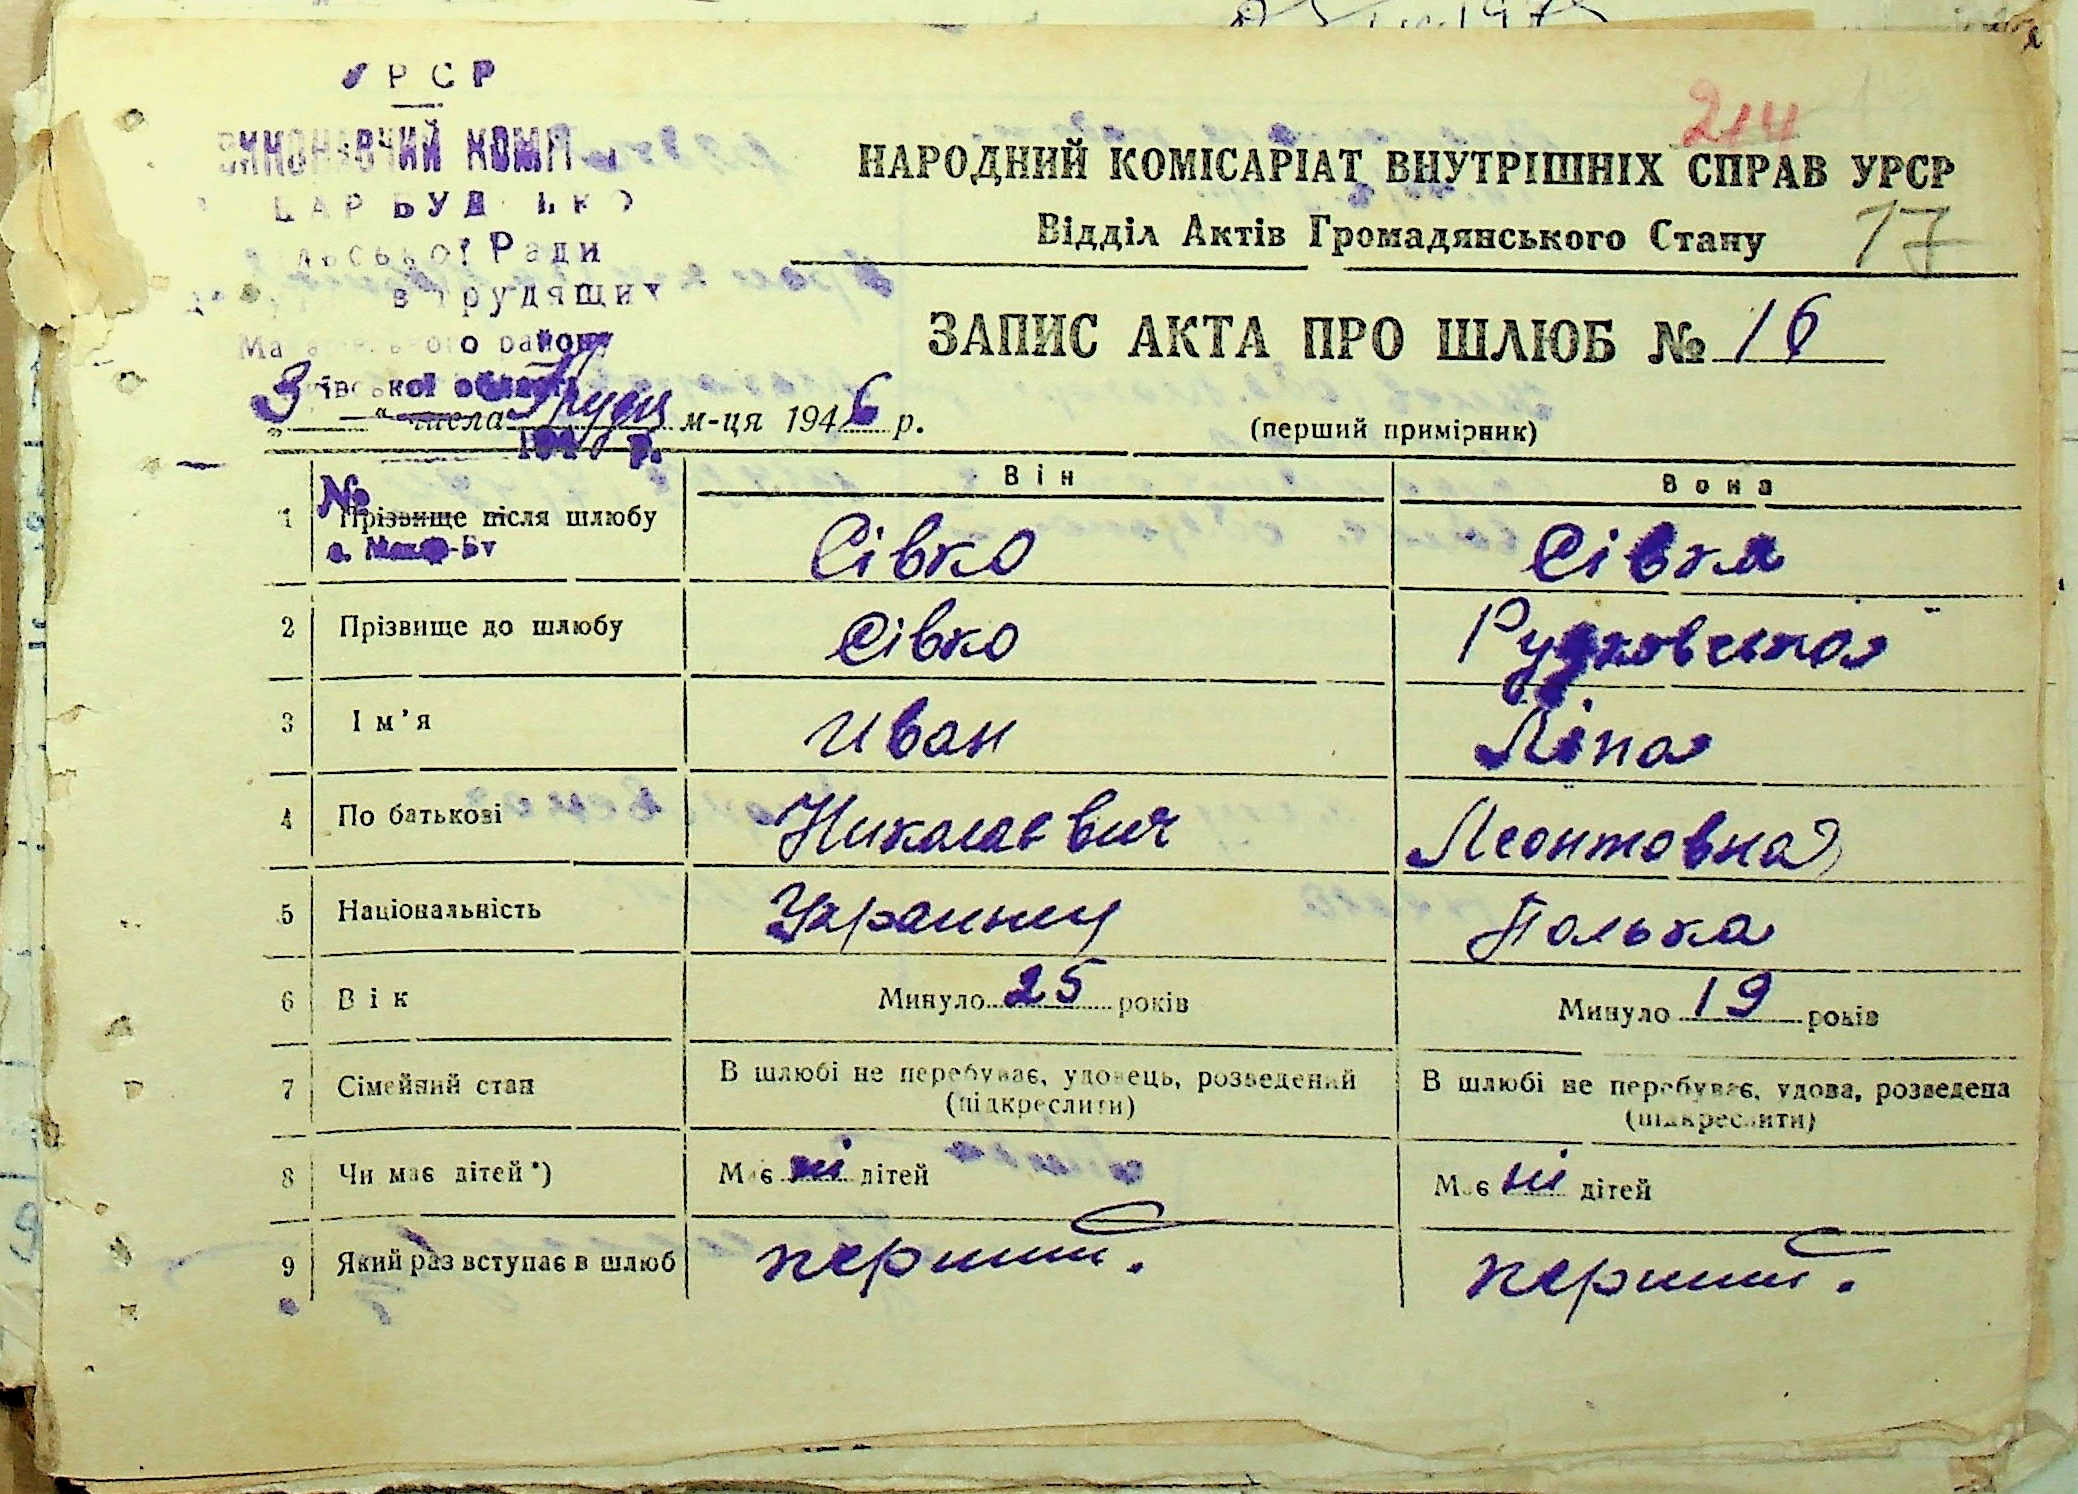 УРСР
ВИКОНАВЧИЙ КОМІТ
Ради
трудящих
району
214
НАРОДНИЙ КОМІСАРІАТ ВНУТРІШНІХ СПРАВ УРСР
Відділ Актів Громадянського Стану
17
ЗАПИС АКТА ПРО ШЛЮБ № 16
„3“ числа Грудня м-ця 1946 р.
(перший примірник)
Він Вона
№
1 Прізвище після шлюбу Сівко Сівка
2 Прізвище до шлюбу Сівко Рудковская
3 Ім’я Иван Ліна
4 По батькові Николаевич Леонтовна
5 Національність Украинец Полька
6 Вік Минуло 25 років Минуло 19 років
7 Сімейний стан В шлюбі не перебуває, удовець, розведений (підкреслити) В шлюбі не перебуває, удова, розведена (підкреслити)
8 Чи має дітей*) Має ні дітей Має ні дітей
9 Який раз вступає в шлюб перший. перший.